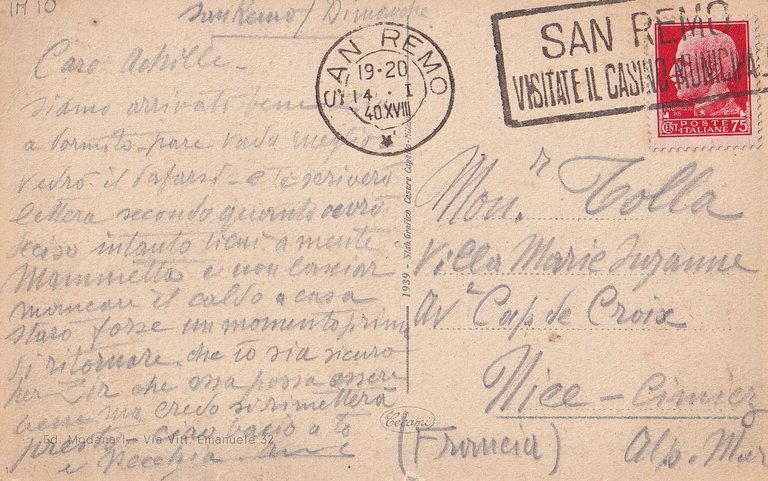 1M 10
San Remo / Dimanche
Caro Achille -
siamo arrivati bene
a dormito - pare vada meglio
vedrò il dafarsi - e ti scriverò
lettera secondo quanto avrò
deciso intanto tieni a mente
Mammetta e non lasciar
mancare il caldo a casa
starò forse un momento prima
di ritornare che io sia sicuro
per Zir che essa possa essere
bene ma credo si rimetterà
presto caro bacio a te
e Vecchia
Ed. Modena I - Via Vitt. Emanuele 32
SAN REMO
19-20
14 . I
40.XVIII
SAN REMO
VISITATE IL CASINO MUNICIPA
POSTE
ITALIANE
CENT 75
1939 - Stab. Grafico Cesare Capello - Milano
(Cecami)
Mon.r Tolla
Villa Marie Suzanne
Av. Cap de Croix
Nice - Cimiez
(Francia) Alp. Mar